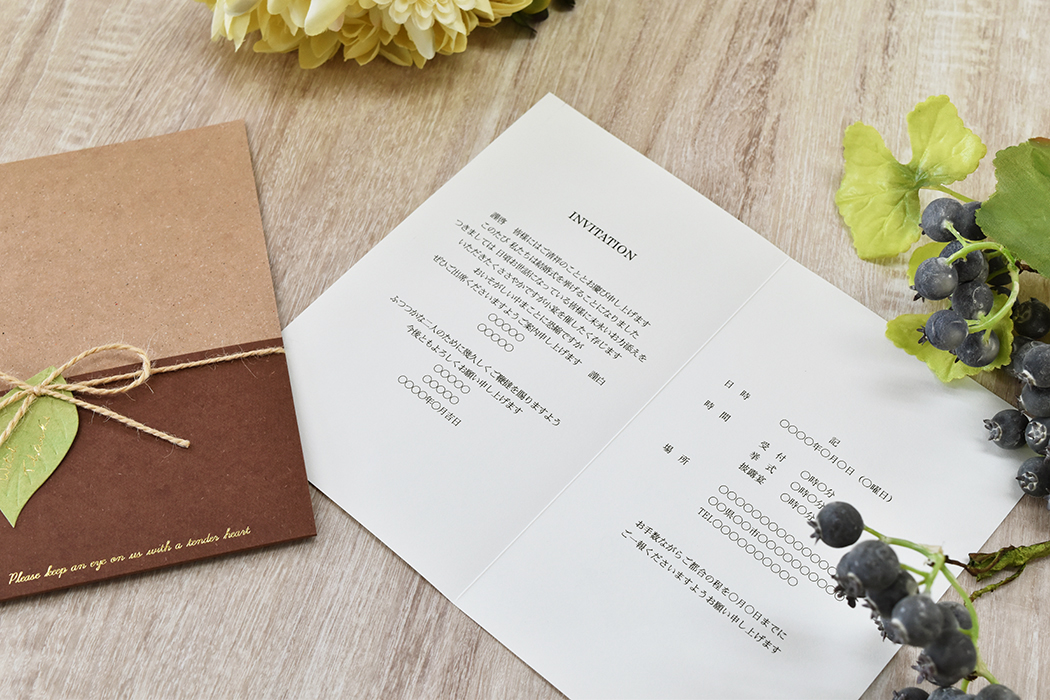 INVITATION
謹啓　皆様にはご清祥のこととお慶び申し上げます
このたび 私たちは結婚式を挙げることになりました
つきましては 日頃お世話になっている皆様に末永いお力添えを
いただきたく ささやかですが小宴を催したく存じます
おいそがしい中まことに恐縮ですが
ぜひご出席くださいますようご案内申し上げます　謹白
○○○○○
○○○○○
ふつつかな二人のために幾久しくご鞭撻を賜りますよう
今後ともよろしくお願い申し上げます
○○○○○
○○○○○
○○○○年○月吉日
記
日　時　○○○○年○月○日（○曜日）
時　間　受　付　○時○分
挙　式　○時○分
披露宴　○時○分
場　所　○○○○○○○○○○○○
○○県○○市○○○○○○○○○
TEL○○○○○○○○○○
お手数ながらご都合の程を○月○日までに
ご一報くださいますようお願い申し上げます
Please keep an eye on us with a tender heart